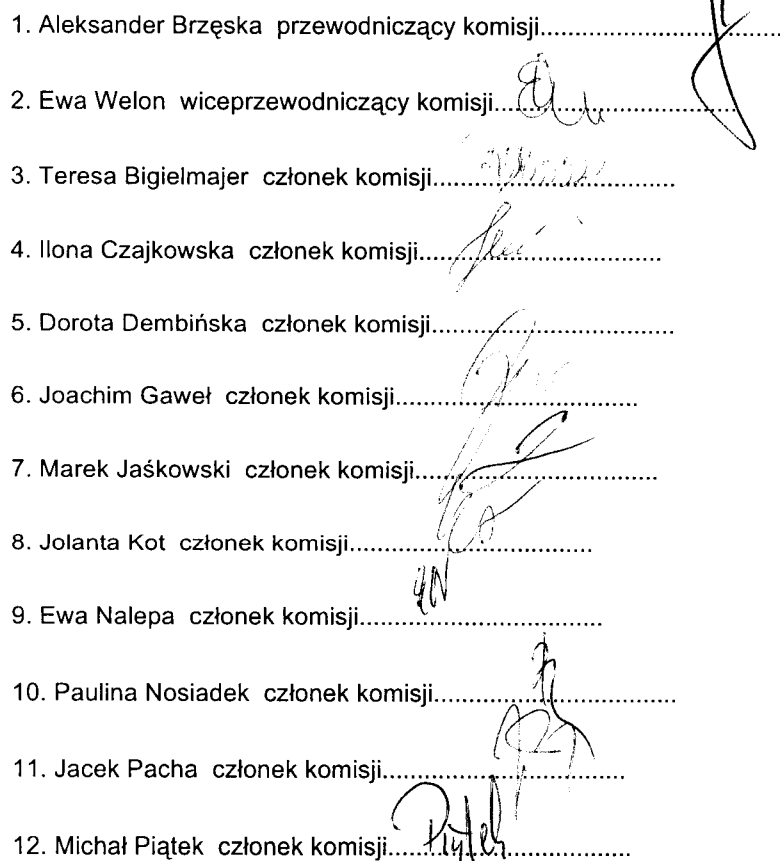 1. Aleksander Brzęska przewodniczący komisji........................................
2. Ewa Welon wiceprzewodniczący komisji........................................
3. Teresa Bigielmajer członek komisji........................................
4. Ilona Czajkowska członek komisji........................................
5. Dorota Dembińska członek komisji........................................
6. Joachim Gaweł członek komisji........................................
7. Marek Jaśkowski członek komisji........................................
8. Jolanta Kot członek komisji........................................
9. Ewa Nalepa członek komisji........................................
10. Paulina Nosiadek członek komisji........................................
11. Jacek Pacha członek komisji........................................
12. Michał Piątek członek komisji......Piątek..............................